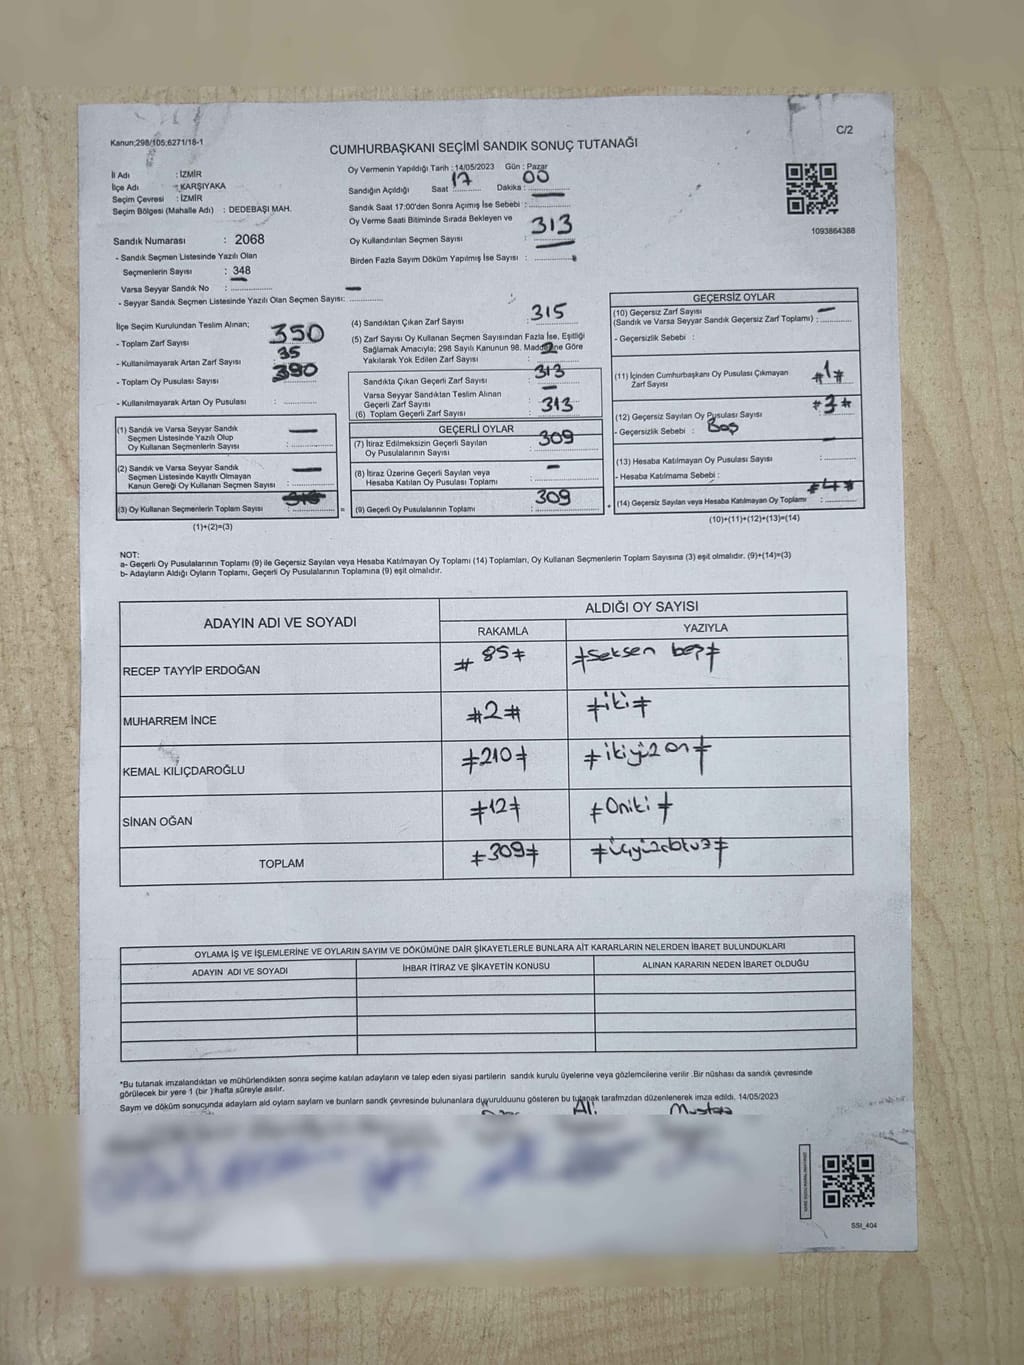 Kanun;298/105;6271/18-1
C/2
CUMHURBAŞKANI SEÇİMİ SANDIK SONUÇ TUTANAĞI
İl Adı : İZMİR
İlçe Adı : KARŞIYAKA
Seçim Çevresi : İZMİR
Seçim Bölgesi (Mahalle Adı) : DEDEBAŞI MAH.
Oy Vermenin Yapıldığı Tarih : 14/05/2023 Gün : Pazar
Sandığın Açıldığı Saat : 17 Dakika : 00
Sandık Saat 17:00'den Sonra Açılmış İse Sebebi :
Oy Verme Saati Bitiminde Sırada Bekleyen ve
Oy Kullandırılan Seçmen Sayısı : 313
Birden Fazla Sayım Döküm Yapılmış İse Sayısı :
1093864388
Sandık Numarası : 2068
- Sandık Seçmen Listesinde Yazılı Olan
Seçmenlerin Sayısı : 348
Varsa Seyyar Sandık No : —
- Seyyar Sandık Seçmen Listesinde Yazılı Olan Seçmen Sayısı:
İlçe Seçim Kurulundan Teslim Alınan;
- Toplam Zarf Sayısı : 350
- Kullanılmayarak Artan Zarf Sayısı : 35
- Toplam Oy Pusulası Sayısı : 390
- Kullanılmayarak Artan Oy Pusulası :
(1) Sandık ve Varsa Seyyar Sandık
Seçmen Listesinde Yazılı Olup
Oy Kullanan Seçmenlerin Sayısı : —
(2) Sandık ve Varsa Seyyar Sandık
Seçmen Listesinde Kayıtlı Olmayan
Kanun Gereği Oy Kullanan Seçmen Sayısı : —
(3) Oy Kullanan Seçmenlerin Toplam Sayısı :
(1)+(2)=(3)
(4) Sandıktan Çıkan Zarf Sayısı : 315
(5) Zarf Sayısı Oy Kullanan Seçmen Sayısından Fazla İse, Eşitliği
Sağlamak Amacıyla; 298 Sayılı Kanunun 98. Maddesine Göre
Yakılarak Yok Edilen Zarf Sayısı : 2
Sandıkta Çıkan Geçerli Zarf Sayısı : 313
Varsa Seyyar Sandıktan Teslim Alınan
Geçerli Zarf Sayısı : —
(6) Toplam Geçerli Zarf Sayısı : 313
GEÇERLİ OYLAR
(7) İtiraz Edilmeksizin Geçerli Sayılan
Oy Pusulalarının Sayısı : 309
(8) İtiraz Üzerine Geçerli Sayılan veya
Hesaba Katılan Oy Pusulası Toplamı : —
(9) Geçerli Oy Pusulalarının Toplamı : 309
GEÇERSİZ OYLAR
(10) Geçersiz Zarf Sayısı
(Sandık ve Varsa Seyyar Sandık Geçersiz Zarf Toplamı) : —
- Geçersizlik Sebebi :
(11) İçinden Cumhurbaşkanı Oy Pusulası Çıkmayan
Zarf Sayısı : #1#
(12) Geçersiz Sayılan Oy Pusulası Sayısı : #3#
- Geçersizlik Sebebi : Boş
(13) Hesaba Katılmayan Oy Pusulası Sayısı : —
- Hesaba Katılmama Sebebi :
(14) Geçersiz Sayılan veya Hesaba Katılmayan Oy Toplamı : #4#
(10)+(11)+(12)+(13)=(14)
NOT:
a- Geçerli Oy Pusulalarının Toplamı (9) ile Geçersiz Sayılan veya Hesaba Katılmayan Oy Toplamı (14) Toplamları, Oy Kullanan Seçmenlerin Toplam Sayısına (3) eşit olmalıdır. (9)+(14)=(3)
b- Adayların Aldığı Oyların Toplamı, Geçerli Oy Pusulalarının Toplamına (9) eşit olmalıdır.
ADAYIN ADI VE SOYADI ALDIĞI OY SAYISI
RAKAMLA YAZIYLA
RECEP TAYYİP ERDOĞAN #85# #Seksen beş#
MUHARREM İNCE #2# #iki#
KEMAL KILIÇDAROĞLU #210# #ikiyüz on#
SİNAN OĞAN #12# #Oniki#
TOPLAM #309# #üçyüzdokuz#
OYLAMA İŞ VE İŞLEMLERİNE VE OYLARIN SAYIM VE DÖKÜMÜNE DAİR ŞİKAYETLERLE BUNLARA AİT KARARLARIN NELERDEN İBARET BULUNDUKLARI
ADAYIN ADI VE SOYADI İHBAR İTİRAZ VE ŞİKAYETİN KONUSU ALINAN KARARIN NEDEN İBARET OLDUĞU
*Bu tutanak imzalandıktan ve mühürlendikten sonra seçime katılan adayların ve talep eden siyasi partilerin sandık kurulu üyelerine veya gözlemcilerine verilir .Bir nüshası da sandık çevresinde
görülecek bir yere 1 (bir ) hafta süreyle asılır.
Sayım ve döküm sonucunda adayların aldı oyların sayıları ve bunların sandk çevresinde bulunanlara duyurulduunu gösteren bu tutanak tarafımzdan düzenlenerek imza edildi. 14/05/2023
Ali Mustafa
SSI_404